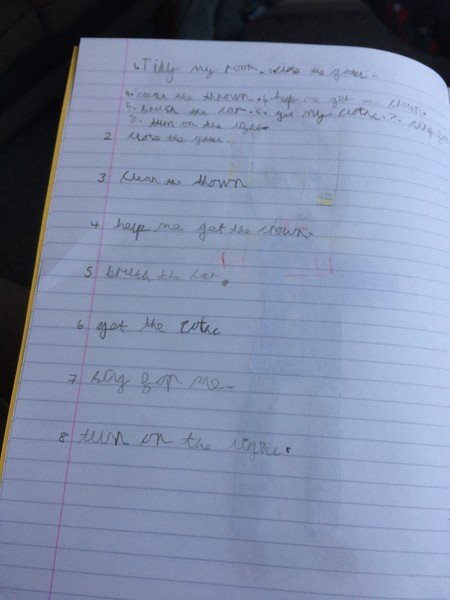 1. Tidy my room. close the gates.
3. clean the thrown. 4. help me get crown.
5. brush the car. 6. get my clothe. 7.
8. turn on the light
2 close the gates.
3 clean the thown
4 help me get the crown.
5 brush the car.
6 get the
7 sing for me.
8 turn on the light.